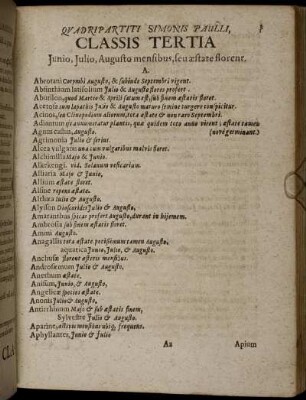 QVADRIPARTITI SIMONIS PAULLI,
CLASSIS TERTIA
Junio, Julio, Augusto mensibus, seu æstate florent.
A.
Abrotani Corymbi Augusto, & subinde Septembri vigent.
Absinthium latifolium Julio & Augusto flores profert.
Abutilon, quod Martio & Aprili satum est, sub finem æstatis floret.
Acetosæ
Acinos, seu Clinopodium alterum, tota æstate & nonnunquam Septembri.
Adiantum
Agnus castus, Augusto.
Agrimonia Julio & serius.
Alcea vulgaris una cum vulgaribus malvis floret.
Alchimilla Majo & Junio.
Alkekengi. vid. Solanum vesicarium.
Alliaria Majo & Junio,
Allium æstate floret.
Alsine repens æstate.
Althæa Julio & Augusto.
Alysson Dioscoridis Julio & Augusto,
Amaranthus spicas profert Augusto, durant in hijemem.
Ambrosia sub finem æstatis floret.
Ammi Augusto.
Anagallis tota æstate potissimum tamen Augusto,
aquatica Junio, Julio, & Augusto.
Anchusæ florent æstivis mensibus.
Androsæmum Julio & Augusto.
Anethum æstate.
Anisum, Junio, & Augusto,
Angelicæ species æstate.
Anonis Julio & Augusto,
Antirrhinum Majo & sub æstatis finem,
Sylvestre Julio & Augusto.
Aparine, æstivis mensibus ubique frequens.
Aphyllantes, Junio & Julio
Aa Apium